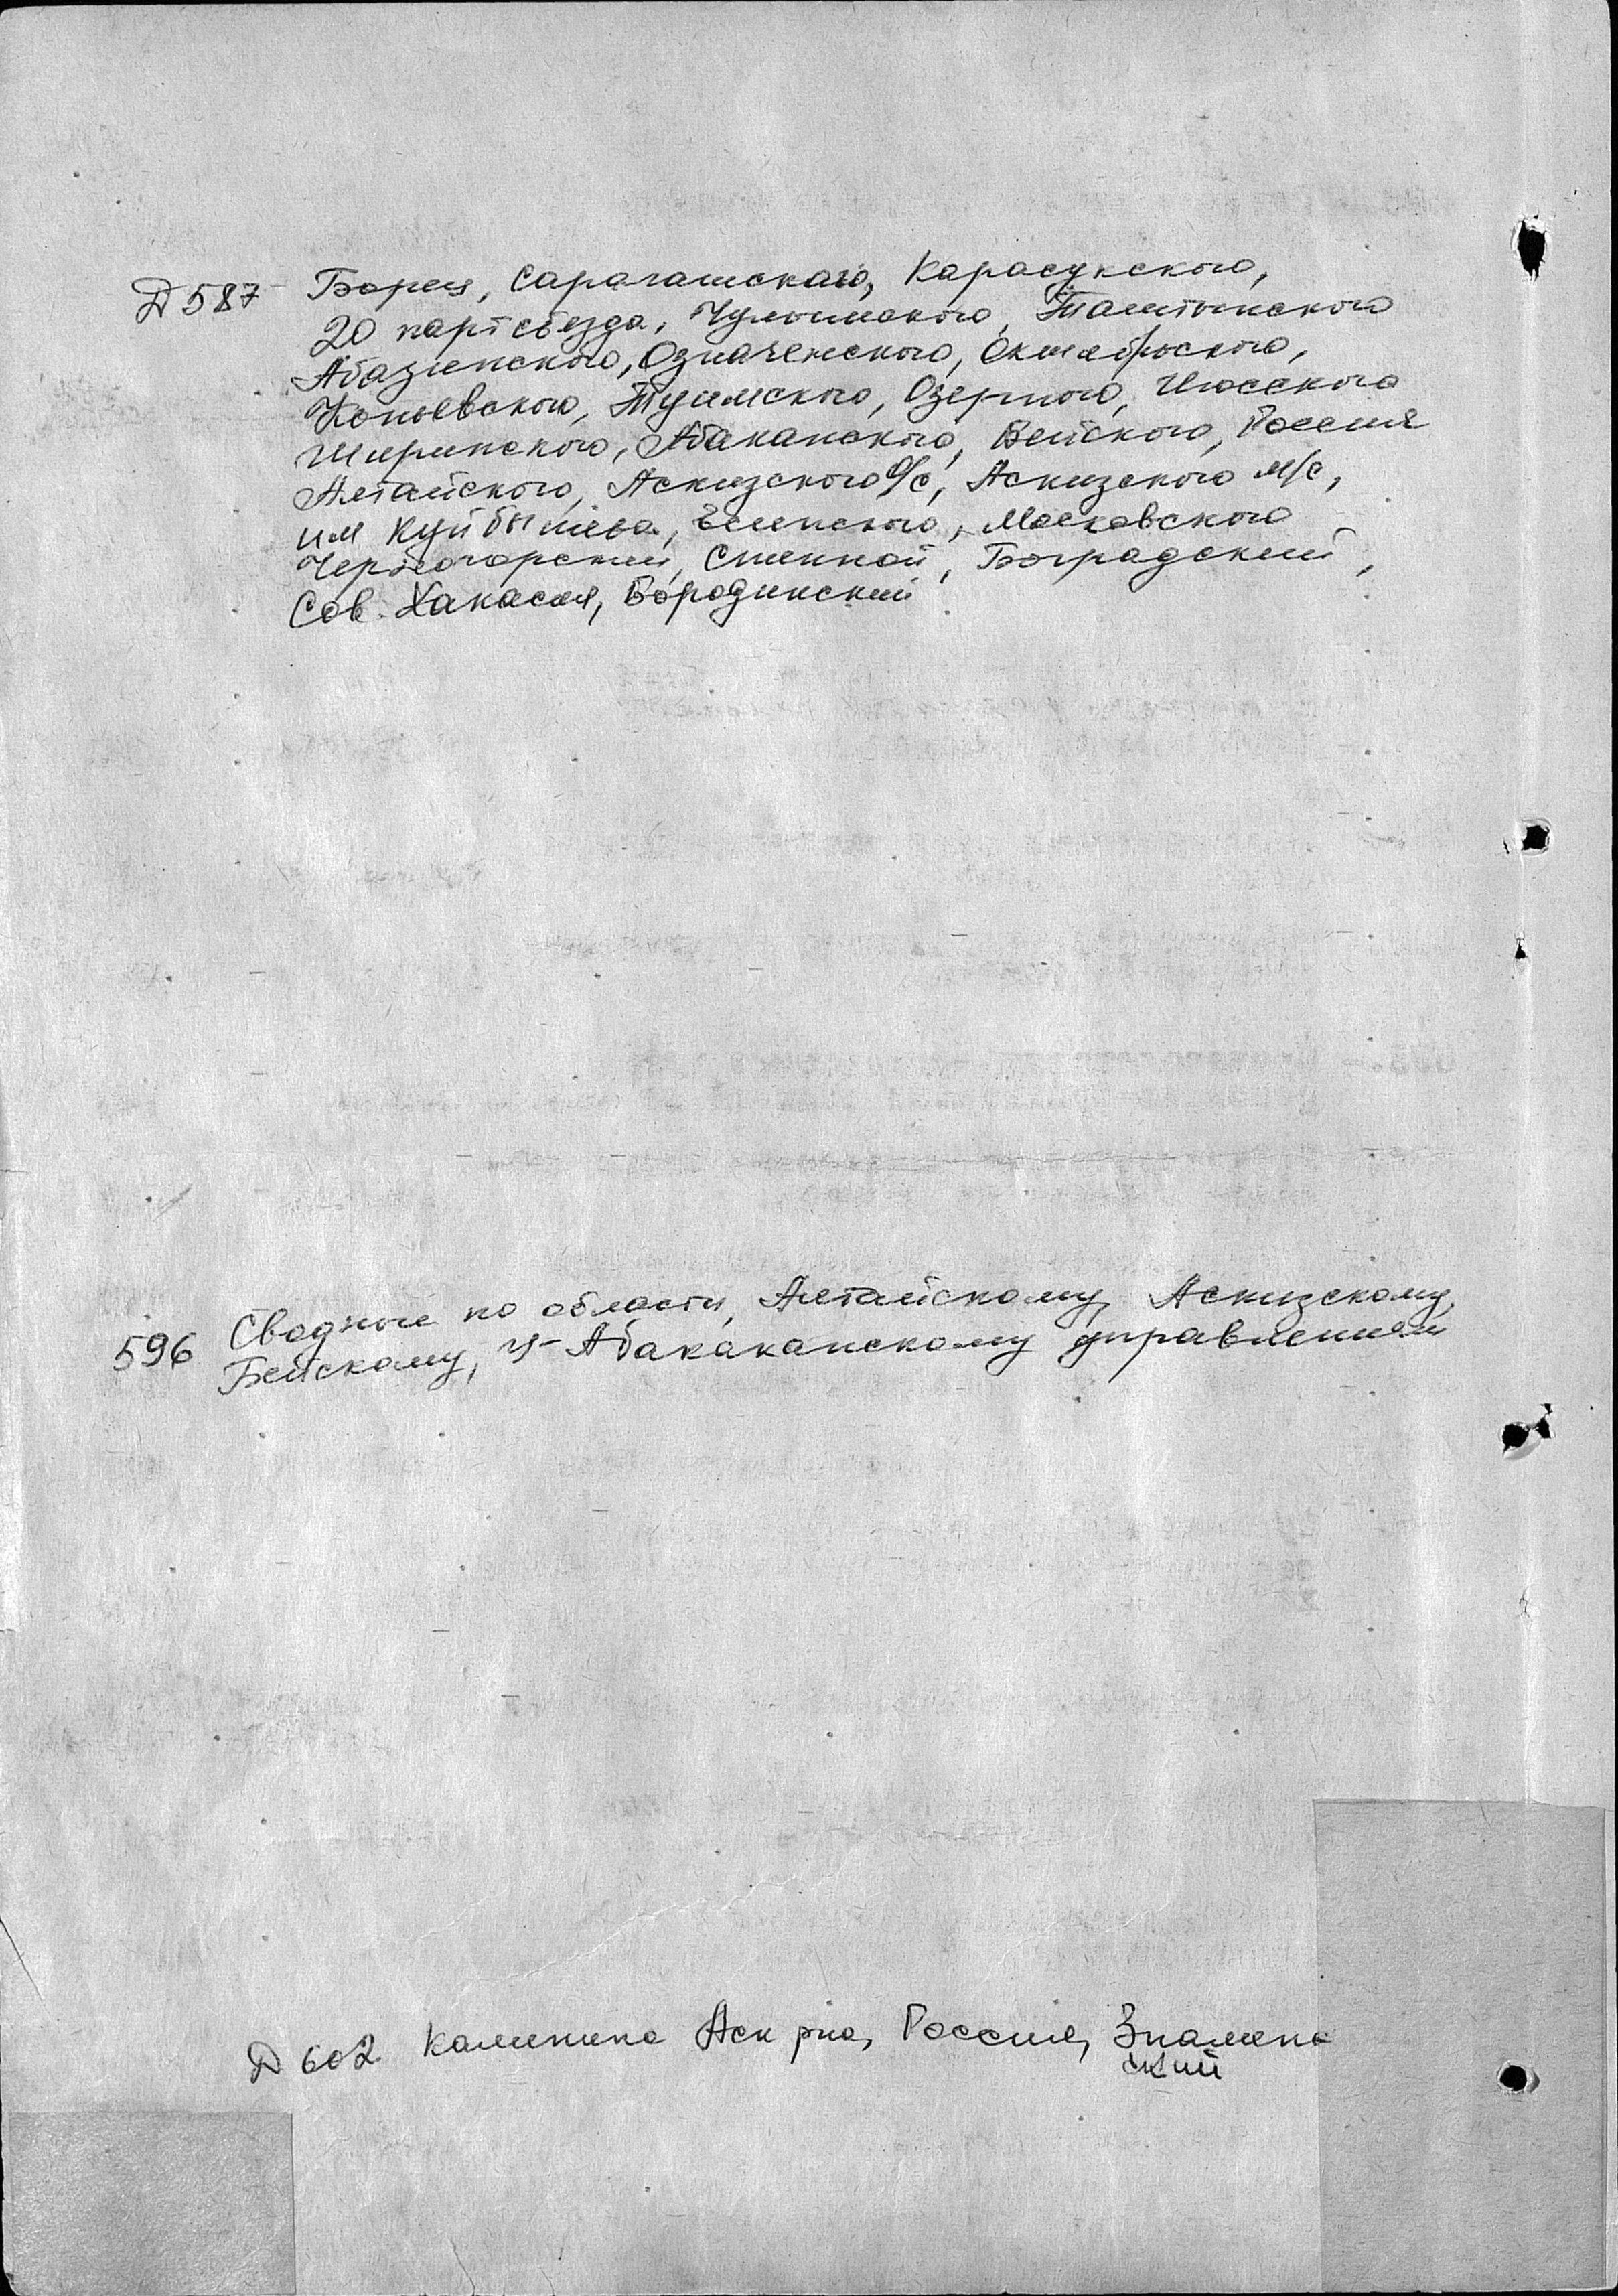 Д 587 Борец, Сарагашского, Карасукского,
20 партсъезда, Чулымского, Таштыпского
Абазинского, Означенского, Октябрьского,
Копьевского, Туимского, Озерного, Июсского
Ширинского, Абаканского, Бейского, Россия
Алтайского, Аскизского о/с, Аскизского м/с,
им Куйбышева, Есинского, Московского
Черногорский, Степной, Боградский,
Сов. Хакасия, Бородинский
596 Сводные по области, Алтайскому, Аскизскому,
Бейскому, У-Абакаканскому управлениям
Д 602 Калинина Аск рна, Россия, Знаменс
ский